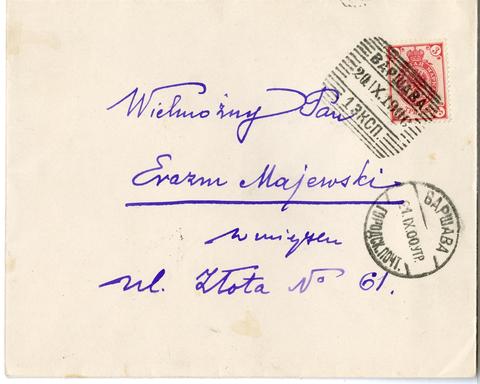 3
ВАРШАВА
20 IX.1900
1 ЭКСП.
Wielmożny Pan
Erazm Majewski
w miejscu
ul. Złota № 61.
ВАРШАВА
21.IX.00 УТР.
ГОРОДСК. ПОЧТ.